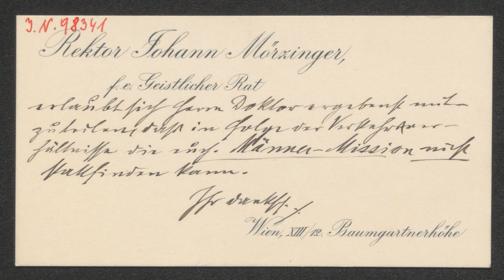 J.N. 98341
Rektor Johann Mörzinger,
f. e. Geistlicher Rat
erlaubt sich Herrn Doktor ergebenst mit-
zuteilen, daß in Folge der Verkehrsver-
hältnisse die Männer-Mission nicht
stattfinden kann.
Ihr dankb.
Wien, XIII/12. Baumgartnerhöhe